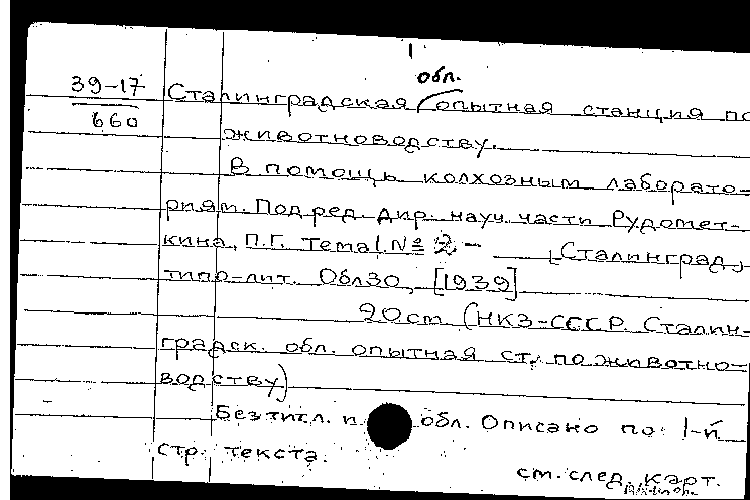 обл.
39-17 Сталинградская опытная станция по
660 животноводству.
В помощь колхозным лаборато-
риям. Под ред. дир. науч. части Рудомет-
кина, П.Г. Тема 1. № 2 – [Сталинград,
типо-лит. Облзо, [1939]
20 см (НКЗ-СССР. Сталин-
градск. обл. опытная ст. по животно-
водству)
Без титл. л. обл. Описано по 1-й
стр. текста.
см. след. карт.